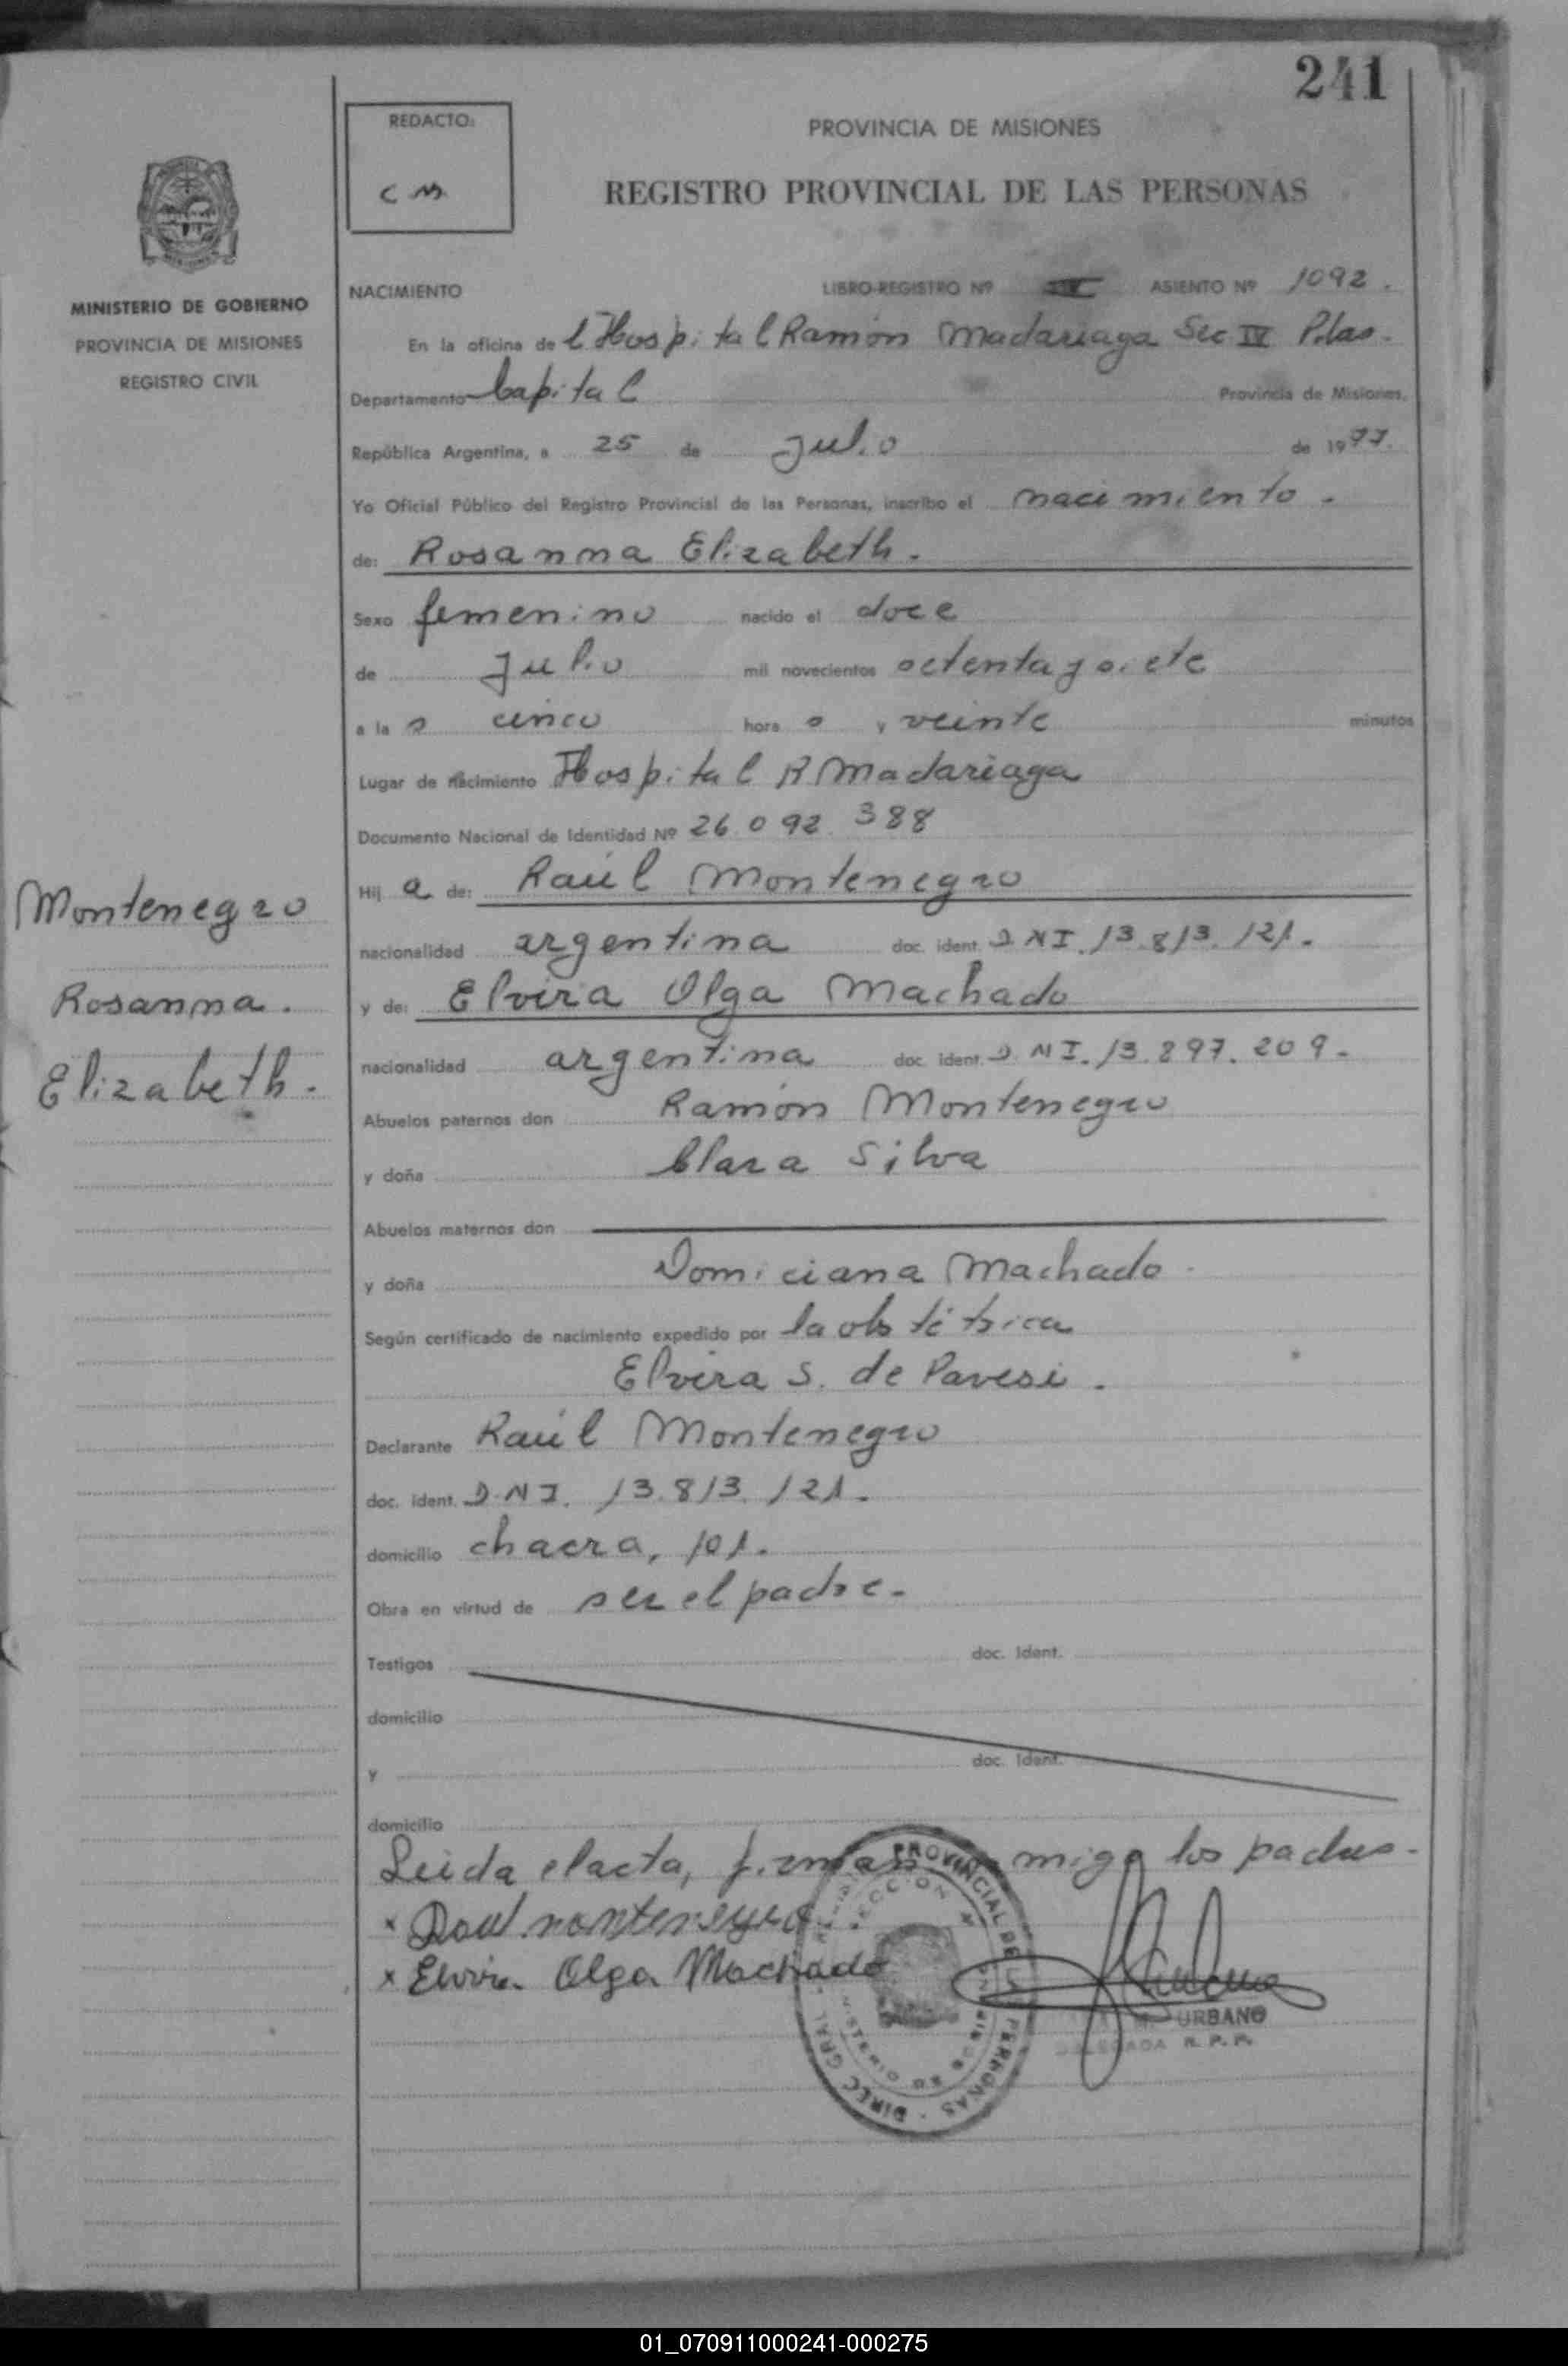 241
REDACTO:
C M
PROVINCIA DE MISIONES
REGISTRO PROVINCIAL DE LAS PERSONAS
MINISTERIO DE GOBIERNO
PROVINCIA DE MISIONES
REGISTRO CIVIL
NACIMIENTO LIBRO-REGISTRO Nº ASIENTO Nº 1092.
En la oficina de l Hospital Ramón Madariaga Sec IV Pdas.
Departamento Capital Provincia de Misiones,
República Argentina, a 25 de Julio de 1977.
Yo Oficial Público del Registro Provincial de las Personas, inscribo el nacimiento.
de: Rosanna Elizabeth.
Sexo femenino nacido el doce
de Julio mil novecientos octenta y siete
a la s cinco hora s y veinte minutos
Lugar de nacimiento Hospital R Madariaga
Documento Nacional de Identidad Nº 26.092.388
Hij a de: Raúl Montenegro
nacionalidad argentina doc. ident. DNI. 13.813.121.
y de: Elvira Olga Machado
nacionalidad argentina doc. ident. D.NI. 13.897.209.
Abuelos paternos don Ramón Montenegro
y doña Clara Silva
Abuelos maternos don
y doña Domiciana Machado.
Según certificado de nacimiento expedido por la obstétrica
Elvira S. de Pavesi.
Declarante Raúl Montenegro
doc. ident. D.N.I. 13.813.121.
domicilio chacra, 101.
Obra en virtud de ser el padre.
Testigos doc. Ident.
domicilio
y doc. Ident.
domicilio
Leida el acta, firman migo los padres.
x Raul montenegro
x Elvira Olga Machado
URBANO
DELEGADA R. P. P.
PROVINCIAL DE LAS PERSONAS - DIREC GRAL
Montenegro
Rosanna.
Elizabeth.
01_070911000241-000275